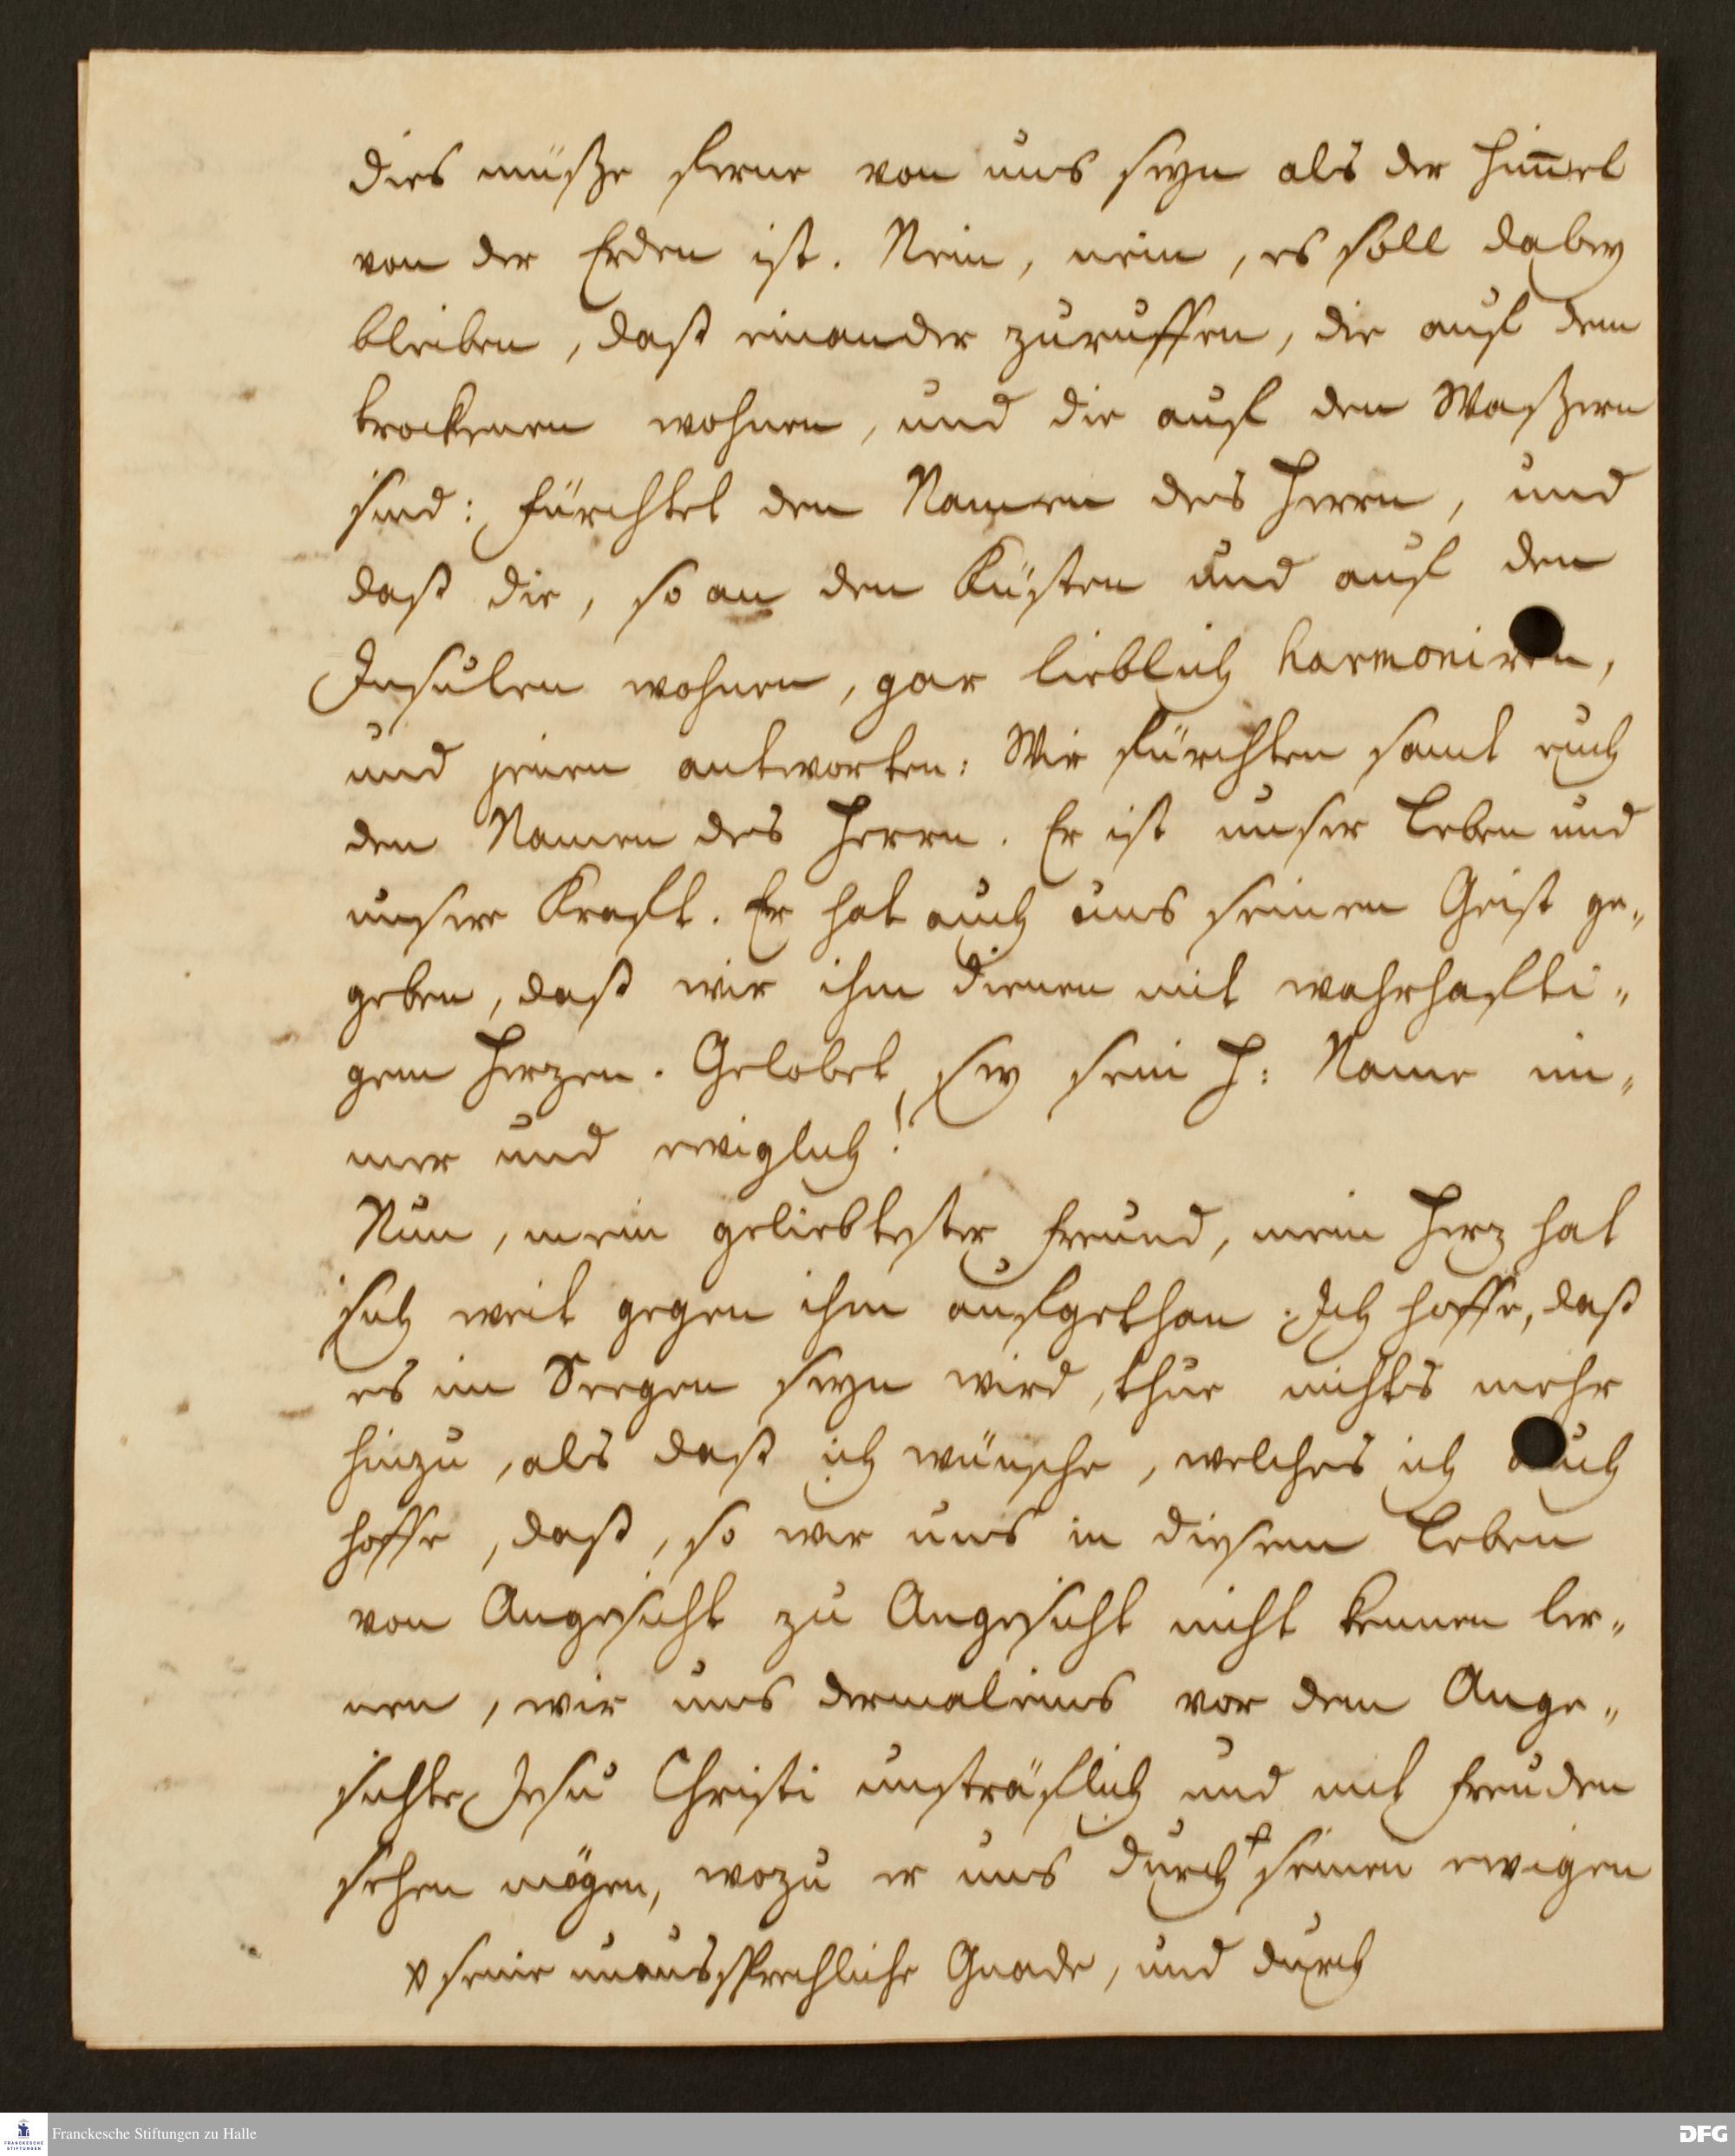 dies müsze ferne von uns seyn als der Him̅el
von der Erden ist. Nein, nein, es soll dabey
bleiben, daß einander zuruffen, die auf dem
trockenen wohnen, und die auf den Waszern
sind: fürchtet den Namen des Herrn, und
daß die, so an den Küsten und auf den
Insulen wohnen, gar lieblich harmoniren,
und jenen antworten: Wir fürchten samt euch
den Namen des Herrn. Er ist unser Leben und
unsere Kraft. Er hat auch uns seinen Geist ge„
geben, daß wir ihm dienen mit wahrhafti„
gem Herzen. Gelobet sey sein H: Name im„
mer und ewiglich!
Nun, mein geliebtester Freund, mein Herz hat
sich weit gegen ihm aufgethan. Ich hoffe, daß
es im Seegen seyn wird, thue nichts mehr
hinzu, als daß ich wünsche, welches ich auch
hoffe, daß, so wir uns in diesem Leben
von Angesicht zu Angesicht nicht kennen ler„
nen, wir uns dermaleins vor dem Ange„
sichte Jesu Christi unsträflich und mit Freuden
sehen mögen, wozu er uns durch + seinen ewigen
x seine unaussprechliche Gnade, und durch
Franckesche Stiftungen zu Halle
DFG